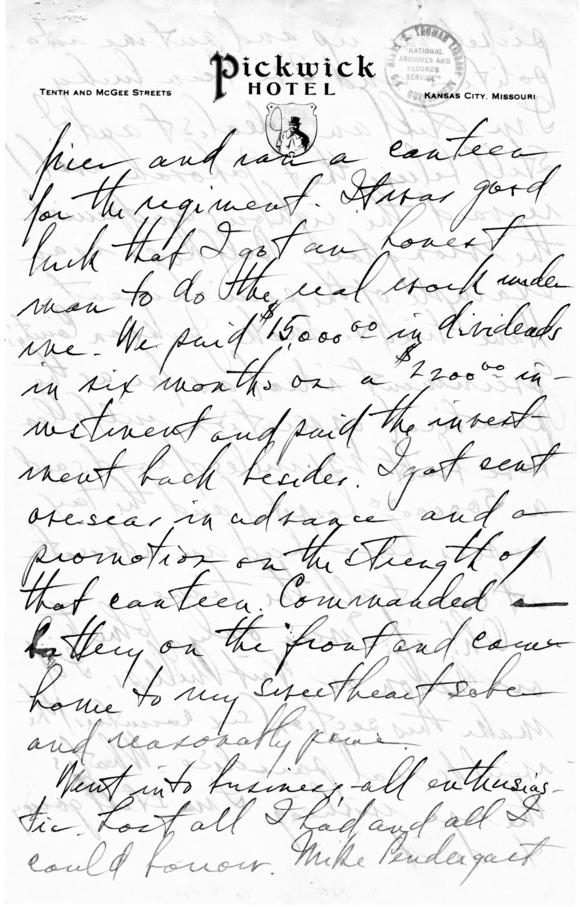 Pickwick
HOTEL
TENTH AND MCGEE STREETS
KANSAS CITY, MISSOURI
HARRY S. TRUMAN LIBRARY
"NATIONAL
ARCHIVES AND
RECORDS
SERVICE"
and ran a canteen
for the regiment. It was good
luck that I got an honest
man to do the real work under
me. We paid $15,000 00 in dividends
in six months on a $2200 00 in-
vestment and paid the invest-
ment back besides. I got sent
overseas in advance and a
promotion on the strength of
that canteen. Commanded a
battery on the front and came
home to my sweetheart sober
and reasonably pure.
Went into business, all enthusias-
tic. Lost all I had and all I
could borrow. Mike Pendergast